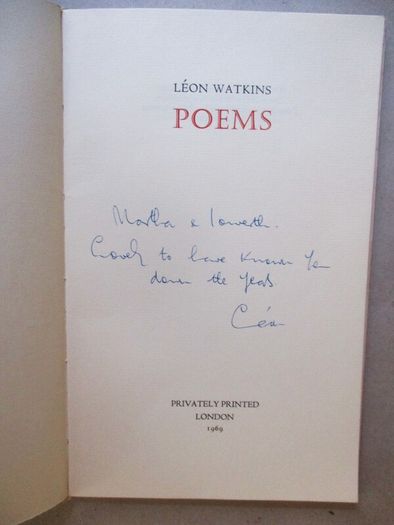 LÉON WATKINS
POEMS
Martha & Iorwerth.
Lovely to have known you
down the years.
Léon
PRIVATELY PRINTED
LONDON
1969